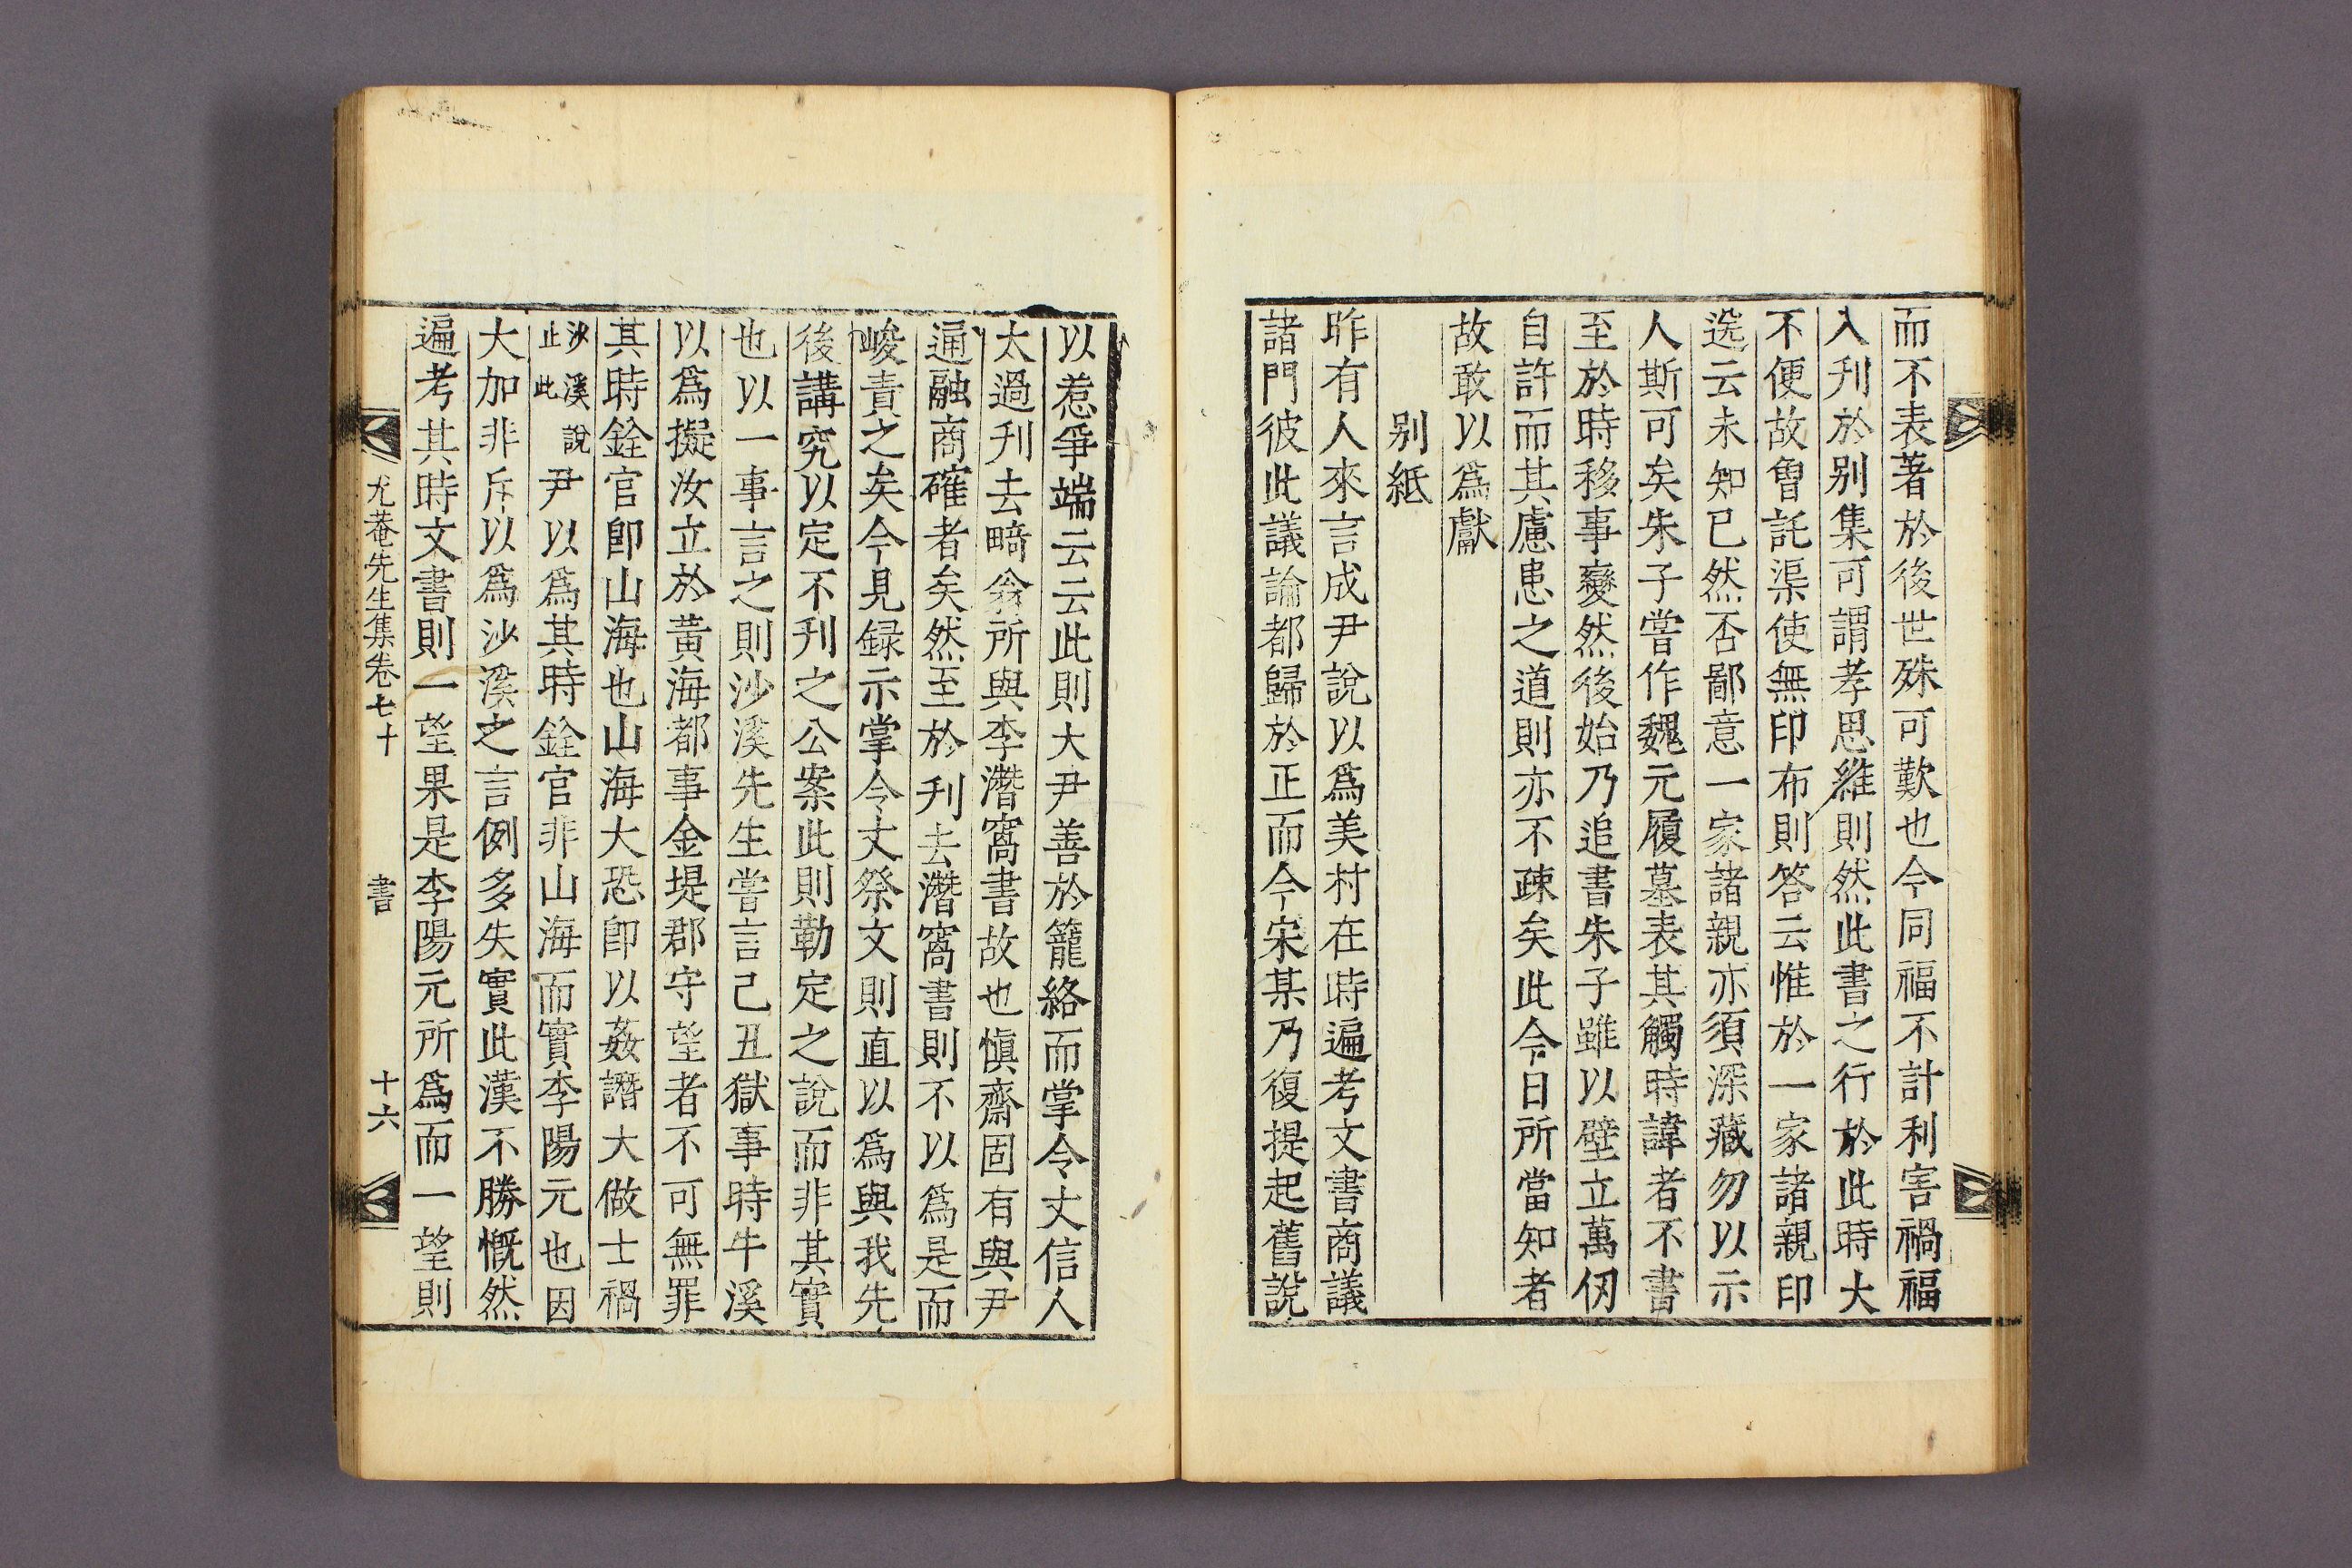 而不表著於後世殊可歎也今同福不計利害禍福
入刋於别集可謂孝思維則然此書之行於此時大
不便故曾託渠使無印布則答云惟於一家諸親印
送云未知已然否鄙意一家諸親亦須深藏勿以示
人斯可矣朱子嘗作魏元履墓表其觸時諱者不書
至於時移事變然後始乃追書朱子雖以壁立萬仞
自許而其慮患之道則亦不疎矣此今日所當知者
故敢以爲獻
别紙
昨有人來言成尹說以爲美村在時遍考文書商議
諸門彼此議論都歸於正而今宋某乃復提起舊說
以惹爭端云云此則大尹善於籠絡而掌令丈信人
太過刋去畸翁所與李潛窩書故也愼齋固有與尹
通融商確者矣然至於刋去潛窩書則不以爲是而
峻責之矣今見録示掌令丈祭文則直以爲與我先
後講究以定不刋之公案此則勒定之說而非其實
也以一事言之則沙溪先生嘗言己丑獄事時牛溪
以爲擬汝立於黃海都事金堤郡守望者不可無罪
其時銓官卽山海也山海大恐卽以姦譖大做士禍
沙溪說
止此
尹以爲其時銓官非山海而實李陽元也因
大加非斥以爲沙溪之言例多失實此漢不勝慨然
遍考其時文書則一望果是李陽元所爲而一望則
尤菴先生集卷七十 書 十六